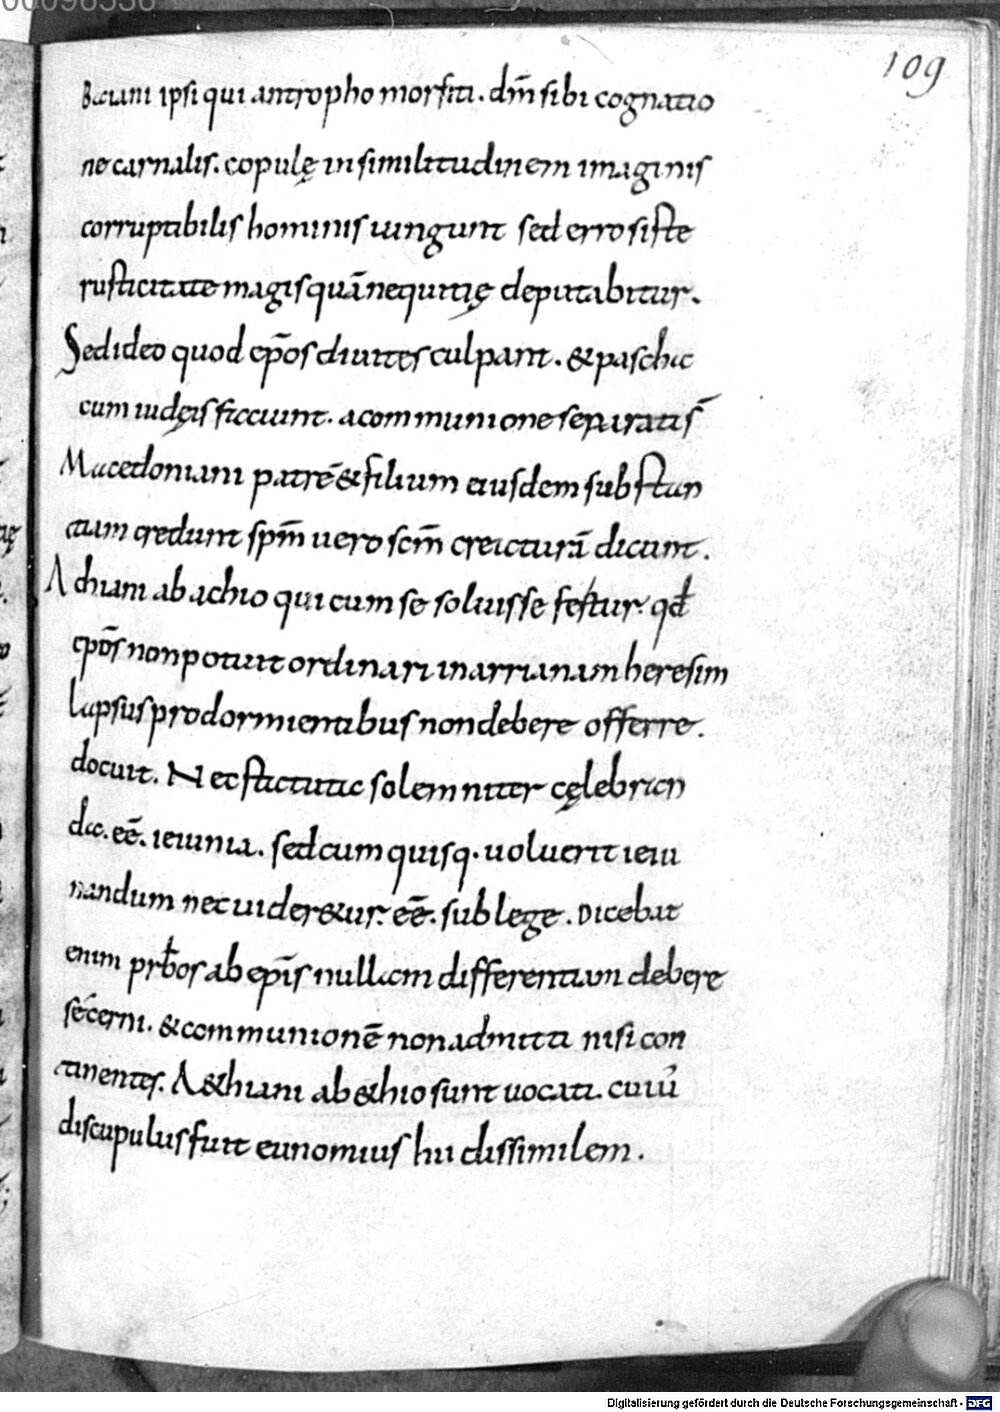 00096338
109
Baciani ipsi qui antropho morfiti. dm̄ sibi cognatio
ne carnalis. copulę in similitudinem imaginis
corruptibilis hominis iungunt sed error iste
rusticitate magis quā nequitię deputabitur.
Sed ideo quod ep̄os diuites culpant. & pascha
cum iudęis faciunt. a communione separatis̄
Macedoniani patrē & filium eiusdem substan
tiam credunt sp̄m uero sc̄m creaturā dicunt.
Achiani ab achio qui cum se soluisse festur. qđ
ep̄os non potuit ordinari in arrianam heresim
lapsus pro dormientibus non debere offerre.
docuit. Nec statuta solemniter cęlebran
da. eē. ieiunia. sed cum quisq. uoluerit ieiu
nandum nec uider&ur. eē. sub lege. Dicebat
enim prƀos ab ep̄is nullam differentiam debere
secerni. & communionē non admitti nisi con
tinentes. A&hiani ab &hio sunt uocati. cuiū
discipulus fuit eunomius hii dissimilem.
Digitalisierung gefördert durch die Deutsche Forschungsgemeinschaft - DFG